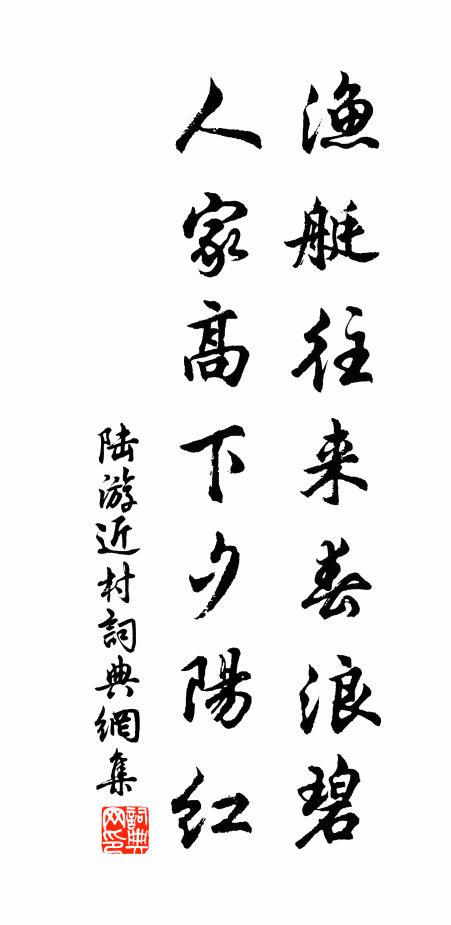 渔艇往来春浪碧
人家高下夕陽红
陆游近村詞典網集
詞典网印